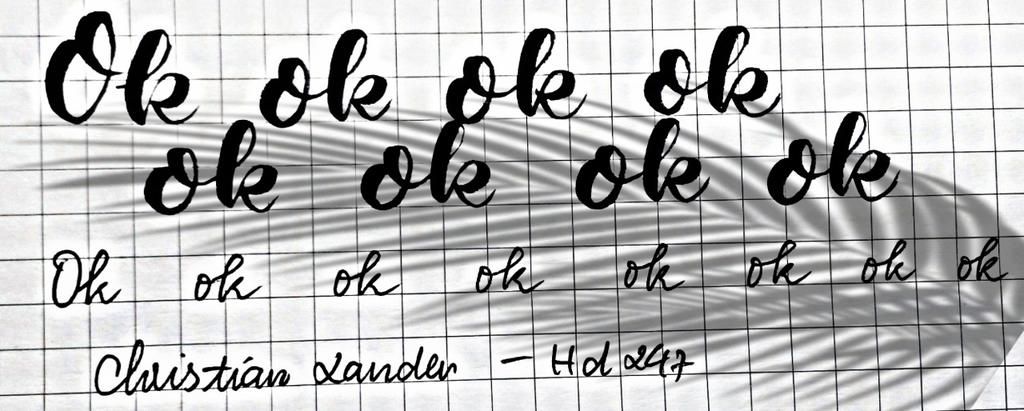 Ok ok ok ok
ok ok ok ok
Ok ok ok ok ok ok ok ok
Christian Xander - Hd 247